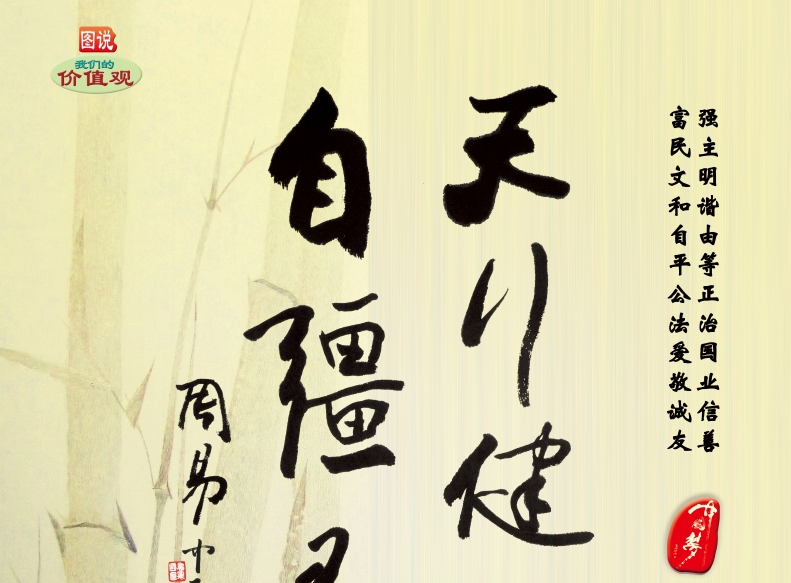 图说
我们的
价值观
富强
民主
文明
和谐
自由
平等
公正
法治
爱国
敬业
诚信
友善
天行健
自彊
周易
中国梦